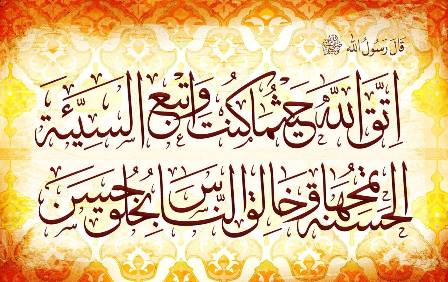 قال رسول الله ﷺ
اتق الله حيثما كنت وأتبع السيئة
الحسنة تمحها وخالق الناس بخلق حسن